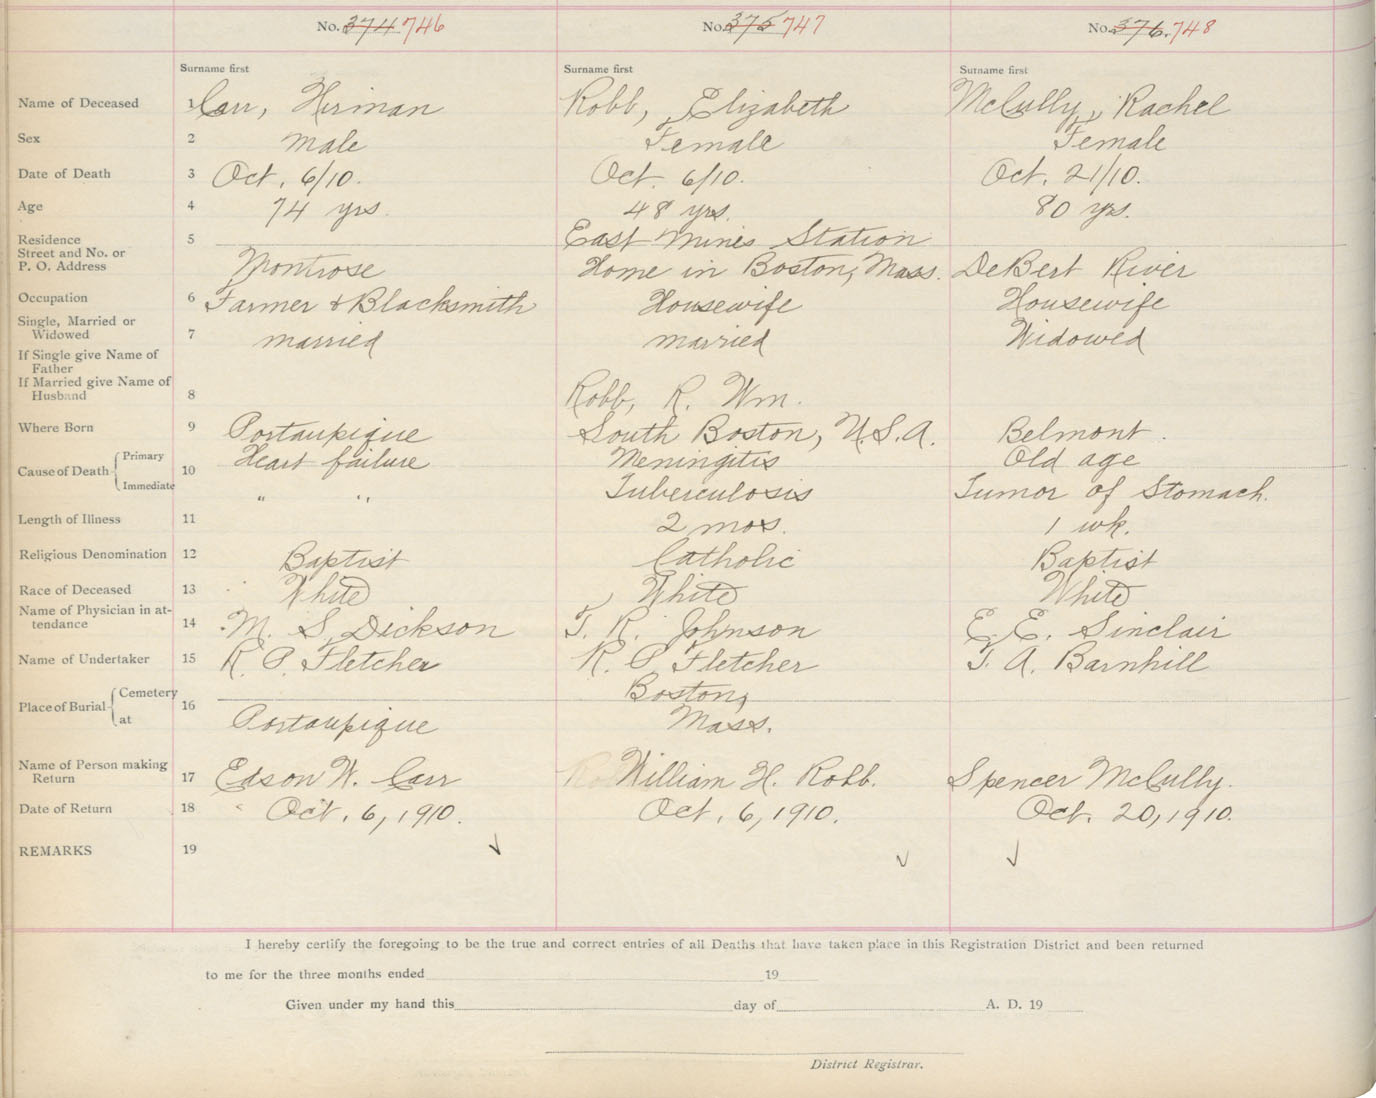 No. 374. 746 No. 375 747 No. 376. 748
Surname first Surname first Surname first
Name of Deceased 1 Carr, Herman Robb, Elizabeth McCully, Rachel
Sex 2 Male Female Female
Date of Death 3 Oct. 6/10. Oct. 6/10. Oct. 21/10.
Age 4 74 yrs. 48 yrs. 80 yrs.
Residence 5 East Mines Station
Street and No. or
P. O. Address Montrose Home in Boston, Mass. DeBert River
Occupation 6 Farmer & Blacksmith Housewife Housewife
Single, Married or
Widowed 7 married married Widowed
If Single give Name of
Father
If Married give Name of
Husband 8 Robb, R. Wm.
Where Born 9 Portaupique South Boston, U.S.A. Belmont.
Cause of Death Primary 10 Heart failure Meningitis Old age
Immediate " " Tuberculosis Tumor of Stomach.
Length of Illness 11 2 mos. 1 wk.
Religious Denomination 12 Baptist Catholic Baptist
Race of Deceased 13 White White White
Name of Physician in at-
tendance 14 M. S. Dickson T. R. Johnson E. E. Sinclair
Name of Undertaker 15 R. P. Fletcher R. P. Fletcher T. A. Barnhill
Place of Burial Cemetery 16 Boston,
at Portaupique Mass.
Name of Person making
Return 17 Edson W. Carr William H. Robb. Spencer McCully.
Date of Return 18 Oct. 6, 1910. Oct. 6, 1910. Oct. 20, 1910.
REMARKS 19
I hereby certify the foregoing to be the true and correct entries of all Deaths that have taken place in this Registration District and been returned
to me for the three months ended 19
Given under my hand this day of A. D. 19
District Registrar.